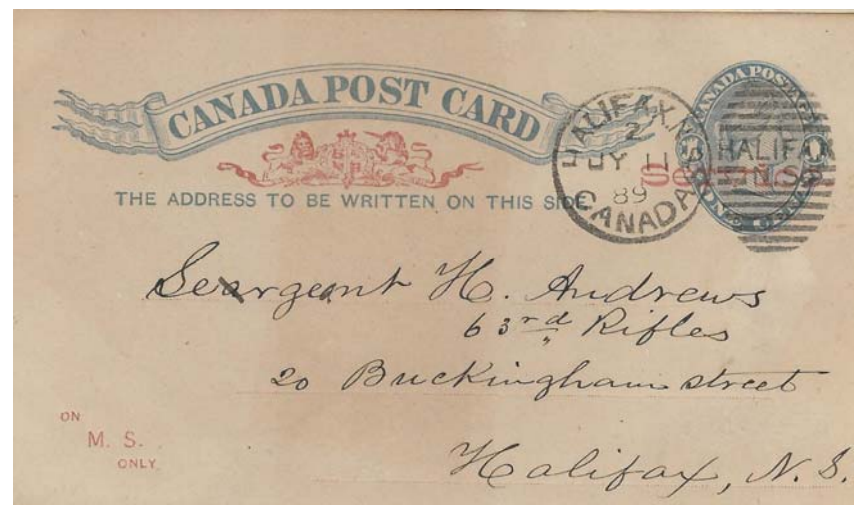 CANADA POST CARD
THE ADDRESS TO BE WRITTEN ON THIS SIDE
HALIFAX, N.S.
2
JY 11
89
CANADA
CANADA POSTAGE
HALIFAX
N. S.
ONE CENT
Seargeant H. Andrews
63rd Rifles
20 Buckingham street
Halifax, N. S.
ON
M. S.
ONLY